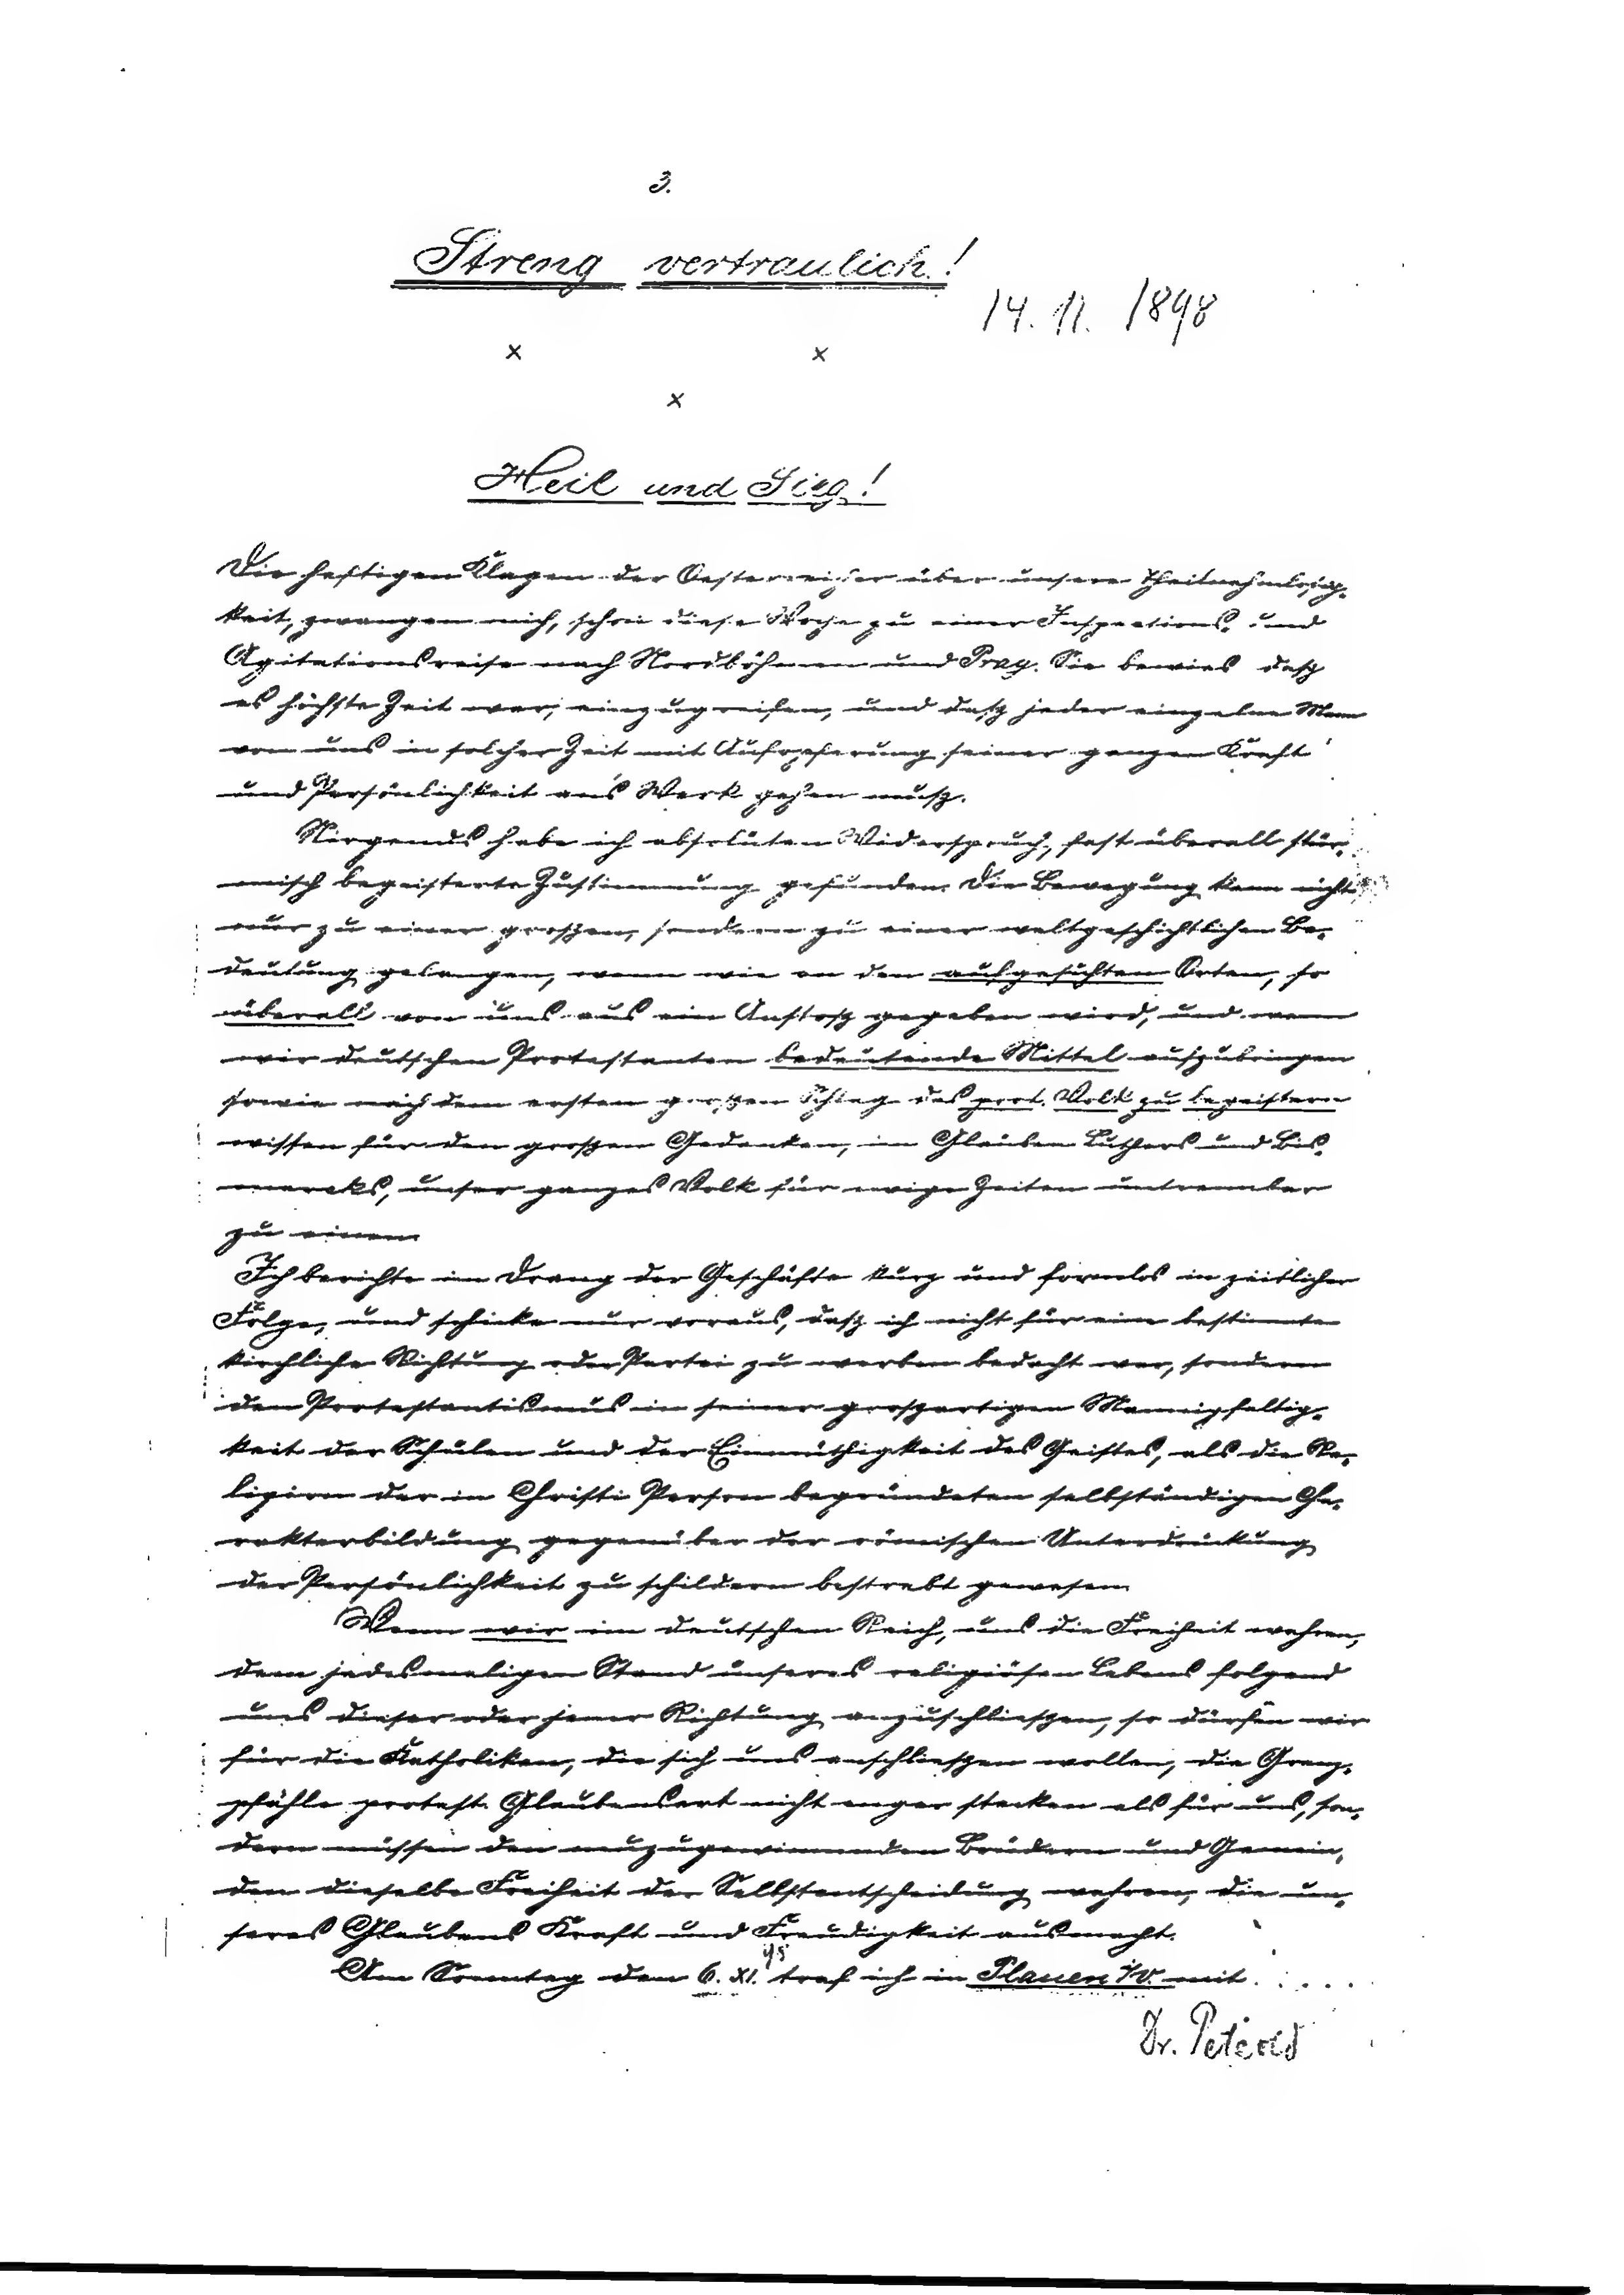 3.
Streng vertraulich!
14. 11. 1898
x x
x
Heil und Sieg!
Die heftigen Klagen der Oesterreicher über unsere Theilnahmlosig-
keit, zwangen mich, schon diese Woche zu einer Inspections- und
Agitationsreise nach Nordböhmen und Prag. Sie bewies dasz
es höchste Zeit war, einzugreifen, und dasz jeder einzelne Mann
von uns in solcher Zeit mit Aufopferung seiner ganzen Kraft
und Persönlichkeit an's Werk gehen musz.
Nirgends habe ich absoluten Widerspruch, fast überall stür-
misch begeisterte Zustimmung gefunden. Die Bewegung kann nicht
nur zu einer groszen, sondern zu einer weltgeschichtlichen Be-
deutung gelangen, wenn wie an den aufgesuchten Orten, so
überall von uns aus ein Anstosz gegeben wird, und wenn
wir deutschen Protestanten bedeutende Mittel aufzubringen
sowie nach dem ersten groszen Schlag das prot. Volk zu begeistern
wissen für den groszen Gedanken, im Glauben Luthers und Bis-
marcks, unser ganzes Volk für ewige Zeiten untrennbar
zu einen
Ich berichte im Drang der Geschäfte kurz und formlos in zeitlicher
Folge, und schicke nur voraus, dasz ich nicht für eine bestimmte
kirchliche Richtung oder Partei zu werben bedacht war, sondern
den Protestantismus in seiner groszartigen Mannigfaltig-
keit der Schulen und der Einmüthigkeit des Geistes, als die Re-
ligion der in Christi Person begründeten selbständigen Cha-
rakterbildung gegenüber der römischen Unterdrückung
der Persönlichkeit zu schildern bestrebt gewesen
Wenn wir im deutschen Reich, uns die Freiheit wahren,
dem jedesmaligen Stand unseres religiösen Lebens folgend
uns dieser oder jener Richtung anzuschlieszen, so dürfen wir
für die Katholiken, die sich uns anschlieszen wollen, die Grenz-
pfähle protest. Glaubensart nicht enger stecken als für uns, son-
dern müssen den neuzugewinnenden Brüdern und Gemein-
den dieselbe Freiheit der Selbstentscheidung wahren, die un-
seres Glaubens Kraft und Freudigkeit ausmacht.
Am Sonntag den 6. XI. 98 traf ich in Plauen i/V. mit . . . . .